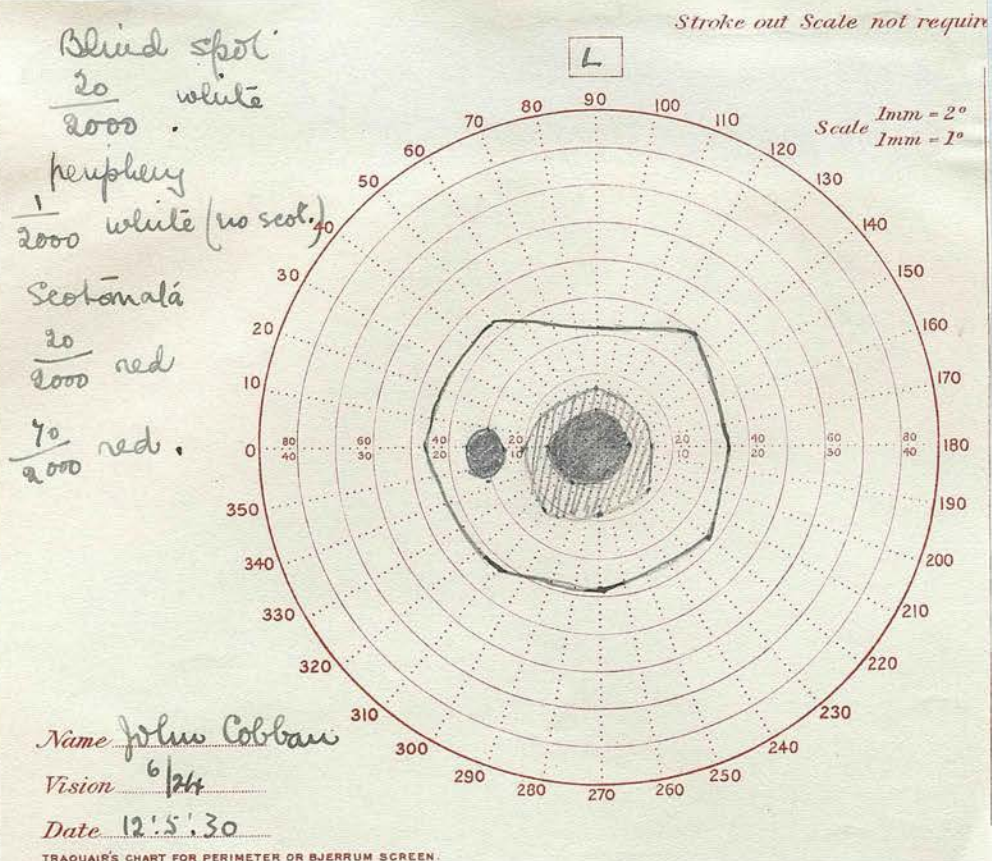 Stroke out Scale not require
L
Scale 1mm = 2°
1mm = 1°
Blind spot
20/2000 white.
periphery
1/2000 white (no scot.)
Scotomata
20/2000 red
70/2000 red.
90
100
110
120
130
140
150
160
170
180
190
200
210
220
230
240
250
260
270
280
290
300
310
320
330
340
350
0
10
20
30
40
50
60
70
80
80 60 40 20 20 40 60 80
40 30 20 10 10 20 30 40
Name John Cobban
Vision 6/24
Date 12.5.30
TRAQUAIR'S CHART FOR PERIMETER OR BJERRUM SCREEN.